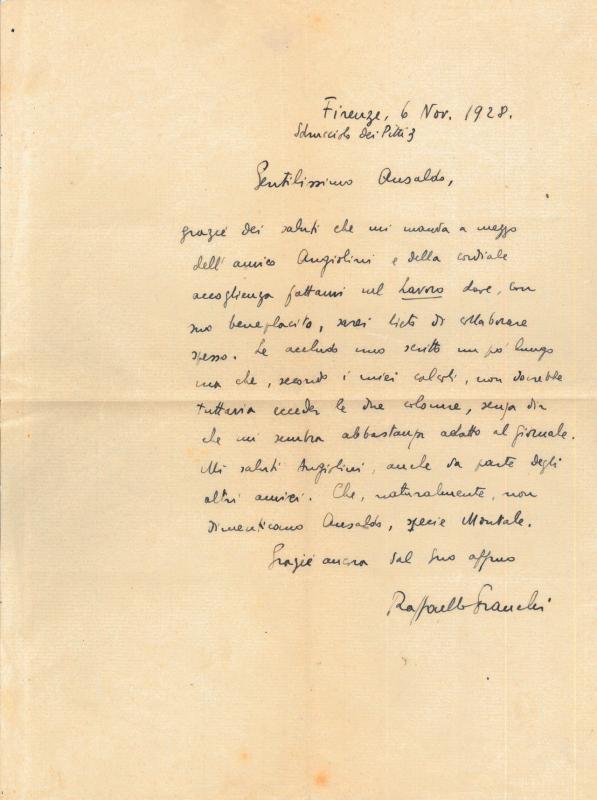 Firenze, 6 Nov. 1928.
Sdrucciolo dei Pitti 3
Gentilissimo Ansaldo,
grazie dei saluti che mi manda a mezzo
dell'amico Angiolini e della cordiale
accoglienza fattami nel Lavoro dove, con
suo beneplacito, sarei lieto di collaborare
spesso. Le accludo uno scritto un po' lungo
ma che, secondo i miei calcoli, non dovrebbe
tuttavia ecceder le due colonne, senza dir
che mi sembra abbastanza adatto al giornale.
Mi saluti Angiolini, anche da parte degli
altri amici. Che, naturalmente, non
dimenticano Ansaldo, specie Montale.
Grazie ancora dal suo affmo
Raffaello Franchi